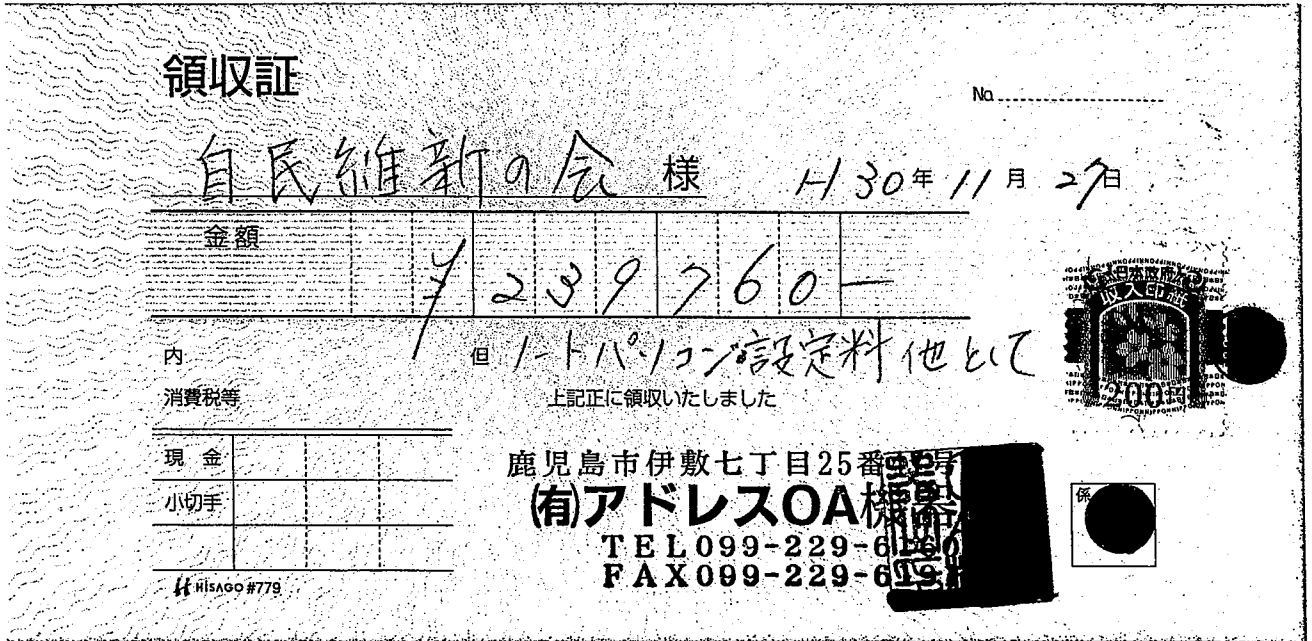 領収証
No.
自民維新の会 様 H30年11月27日
金額
¥239760-
内 但 ノートパソコン設定料他として
消費税等 上記正に領収いたしました
日本政府
収入印紙
200円
現金
小切手
鹿児島市伊敷七丁目25番
(有)アドレスOA機器
TEL099-229-6160
FAX099-229-619
係
HISAGO #779